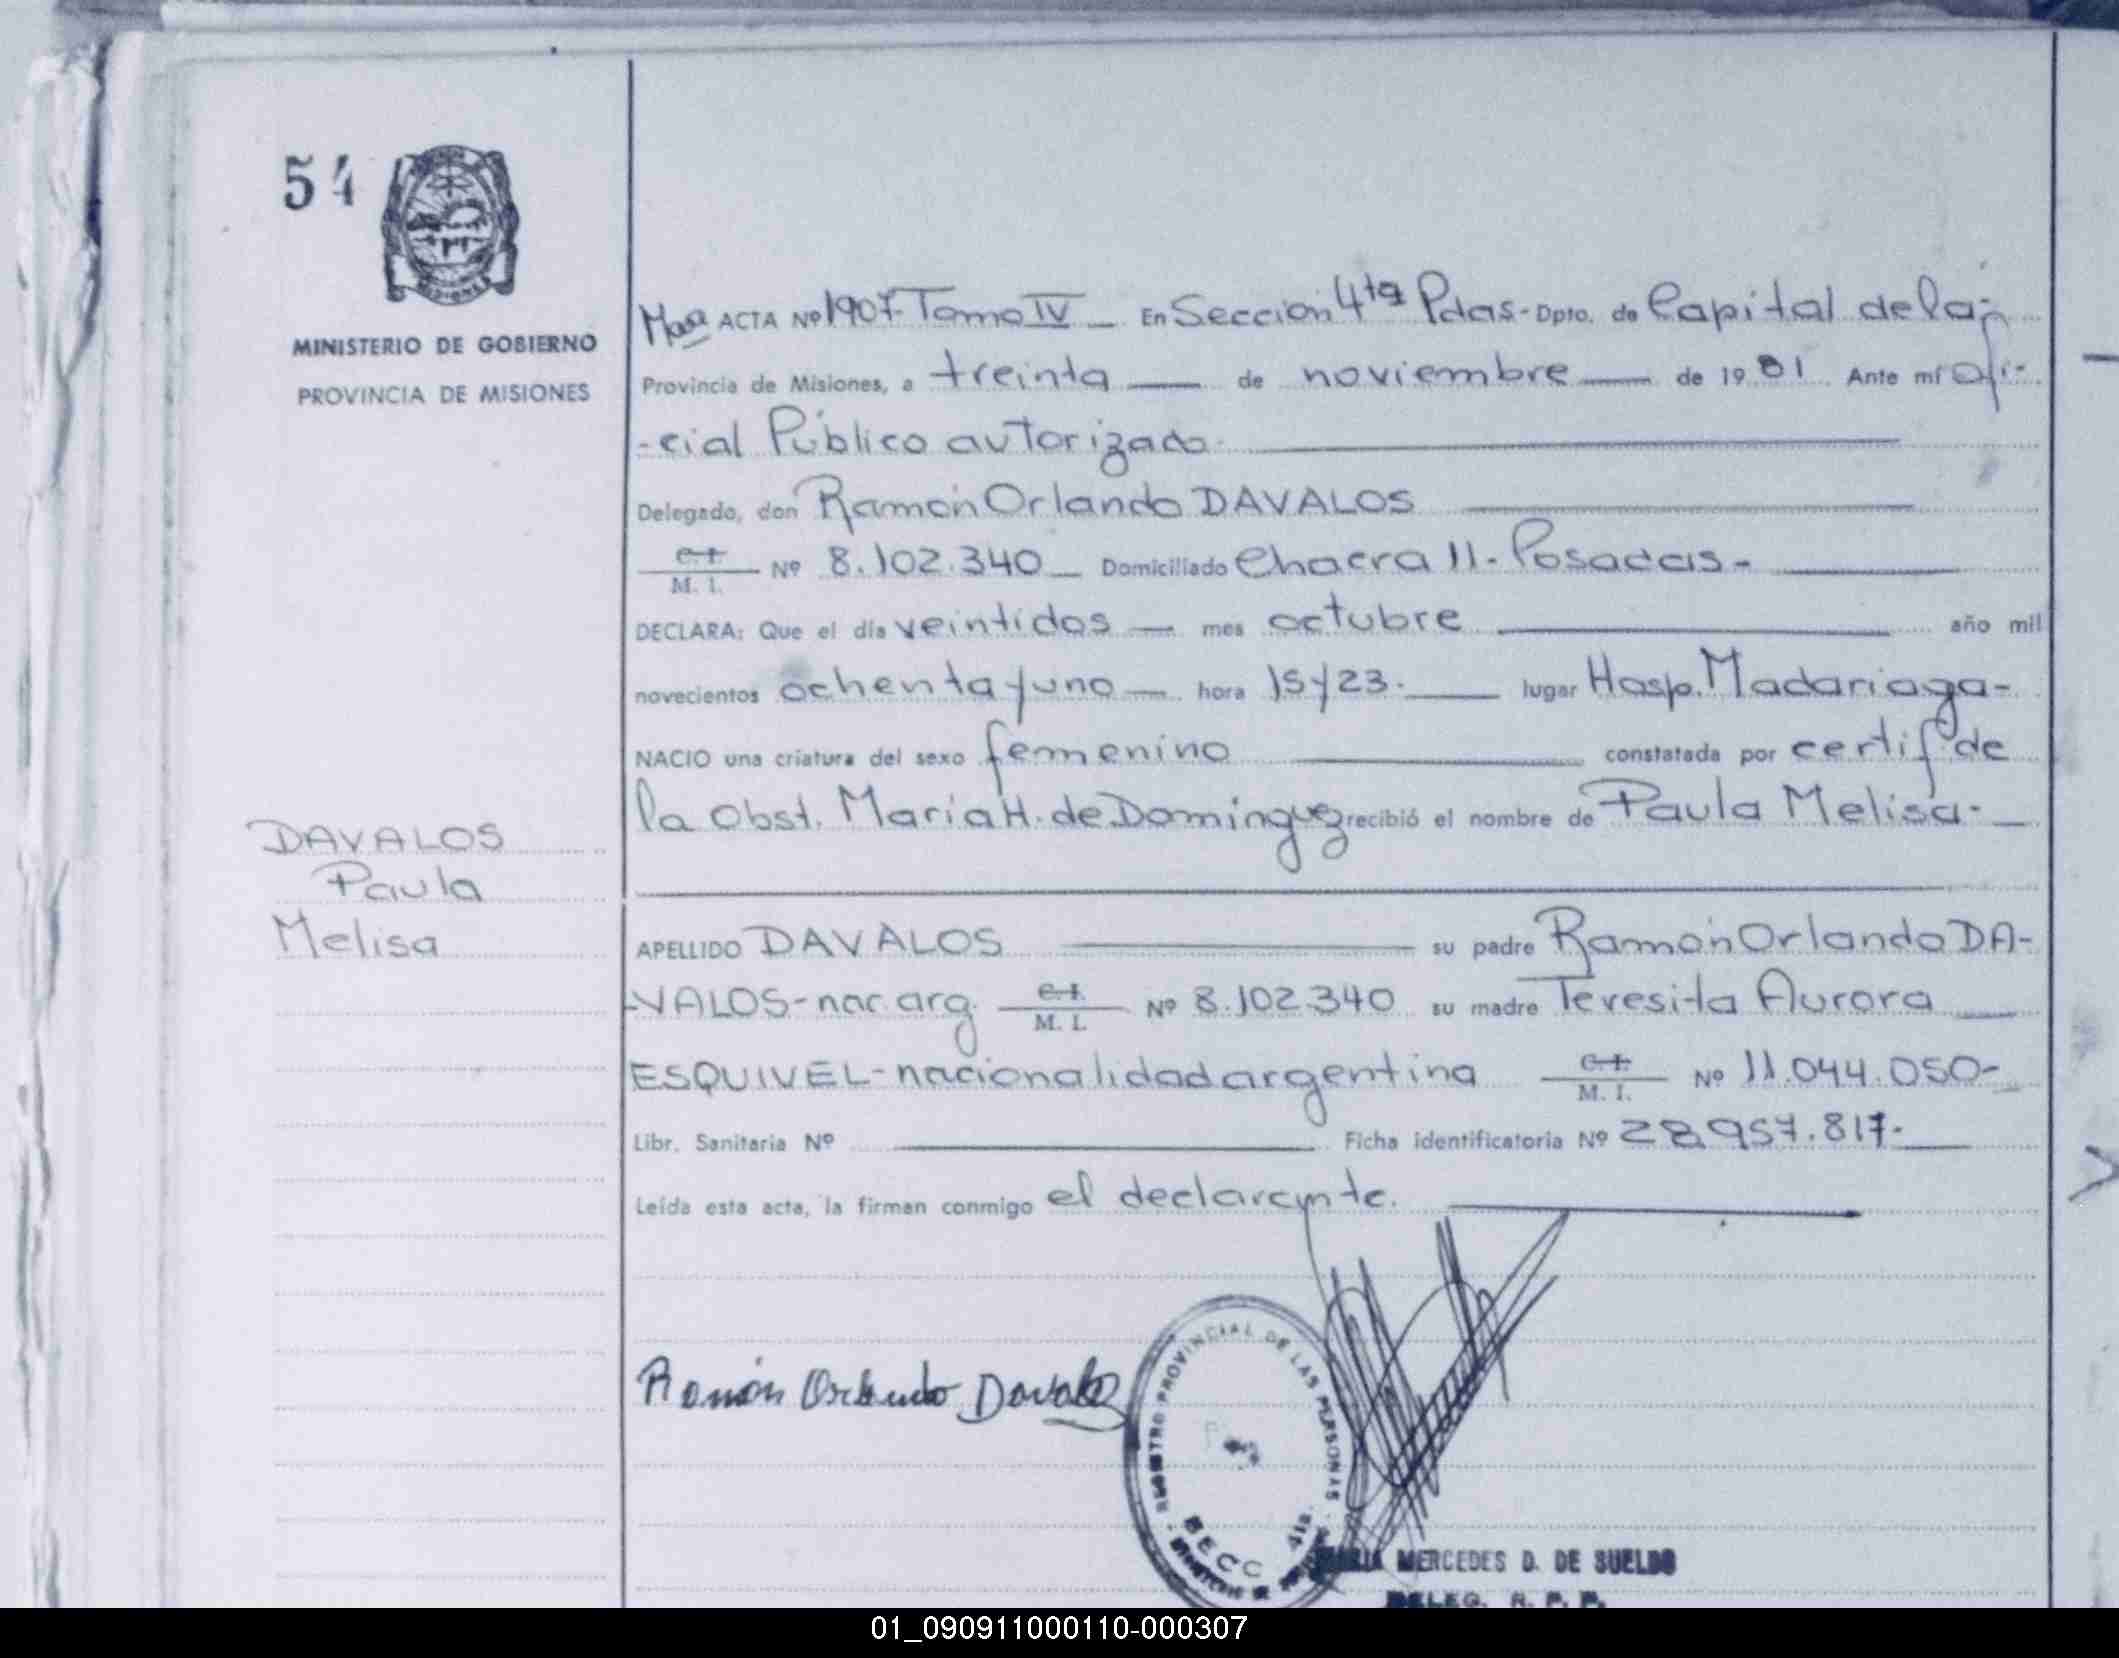 54
MINISTERIO DE GOBIERNO
PROVINCIA DE MISIONES
ACTA Nº 1907 - Tomo IV — En Sección 4ta Pdas - Dpto. de Capital de la
Provincia de Misiones, a treinta — de noviembre — de 19 81 Ante mí Ofi-
-cial Público autorizado.
Delegado, don Ramón Orlando DAVALOS
C.I.
M. I. Nº 8.102.340 — Domiciliado Chacra 11 - Posadas -
DECLARA: Que el día veintidos — mes octubre — año mil
novecientos ochenta y uno — hora 15 y 23. — lugar Hosp. Madariaga -
NACIO una criatura del sexo femenino — constatada por certif. de
la Obst. María H. de Domínguez recibió el nombre de Paula Melisa. —
DAVALOS
Paula
Melisa
APELLIDO DAVALOS — su padre Ramón Orlando DA-
-VALOS - nac. arg. C.I.
M. I. Nº 8.102.340 su madre Teresita Aurora —
ESQUIVEL - nacionalidad argentina C.I.
M. I. Nº 11.044.050 -
Libr. Sanitaria Nº — Ficha identificatoria Nº 28.957.817. —
Leída esta acta, la firman conmigo el declarante.
Ramón Orlando Davalos
REGISTRO PROVINCIAL DE LAS PERSONAS
MERCEDES D. DE SUELDO
DELEG. R. P. P.
01_090911000110-000307